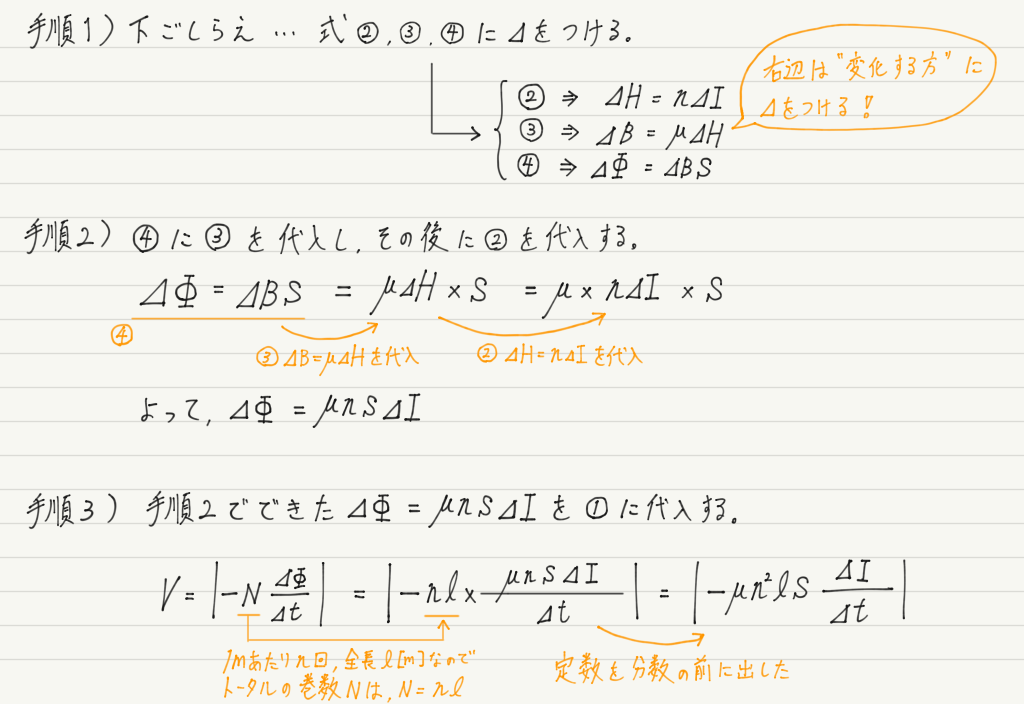 手順1) 下ごしらえ … 式②,③,④にΔをつける。
右辺は"変化する方"に
Δをつける!
② ⇒ ΔH = nΔI
③ ⇒ ΔB = μΔH
④ ⇒ ΔΦ = ΔBS
手順2) ④に③を代入し,その後に②を代入する。
ΔΦ = ΔBS = μΔH × S = μ × nΔI × S
④
③ ΔB=μΔHを代入
② ΔH=nΔIを代入
よって, ΔΦ = μnSΔI
手順3) 手順2でできた ΔΦ = μnSΔI を①に代入する。
V = |-N ΔΦ/Δt| = |-nl × μnSΔI/Δt| = |-μn²lS ΔI/Δt|
1mあたりn回,全長l[m]なので
トータルの巻数Nは, N=nl
定数を分数の前に出した